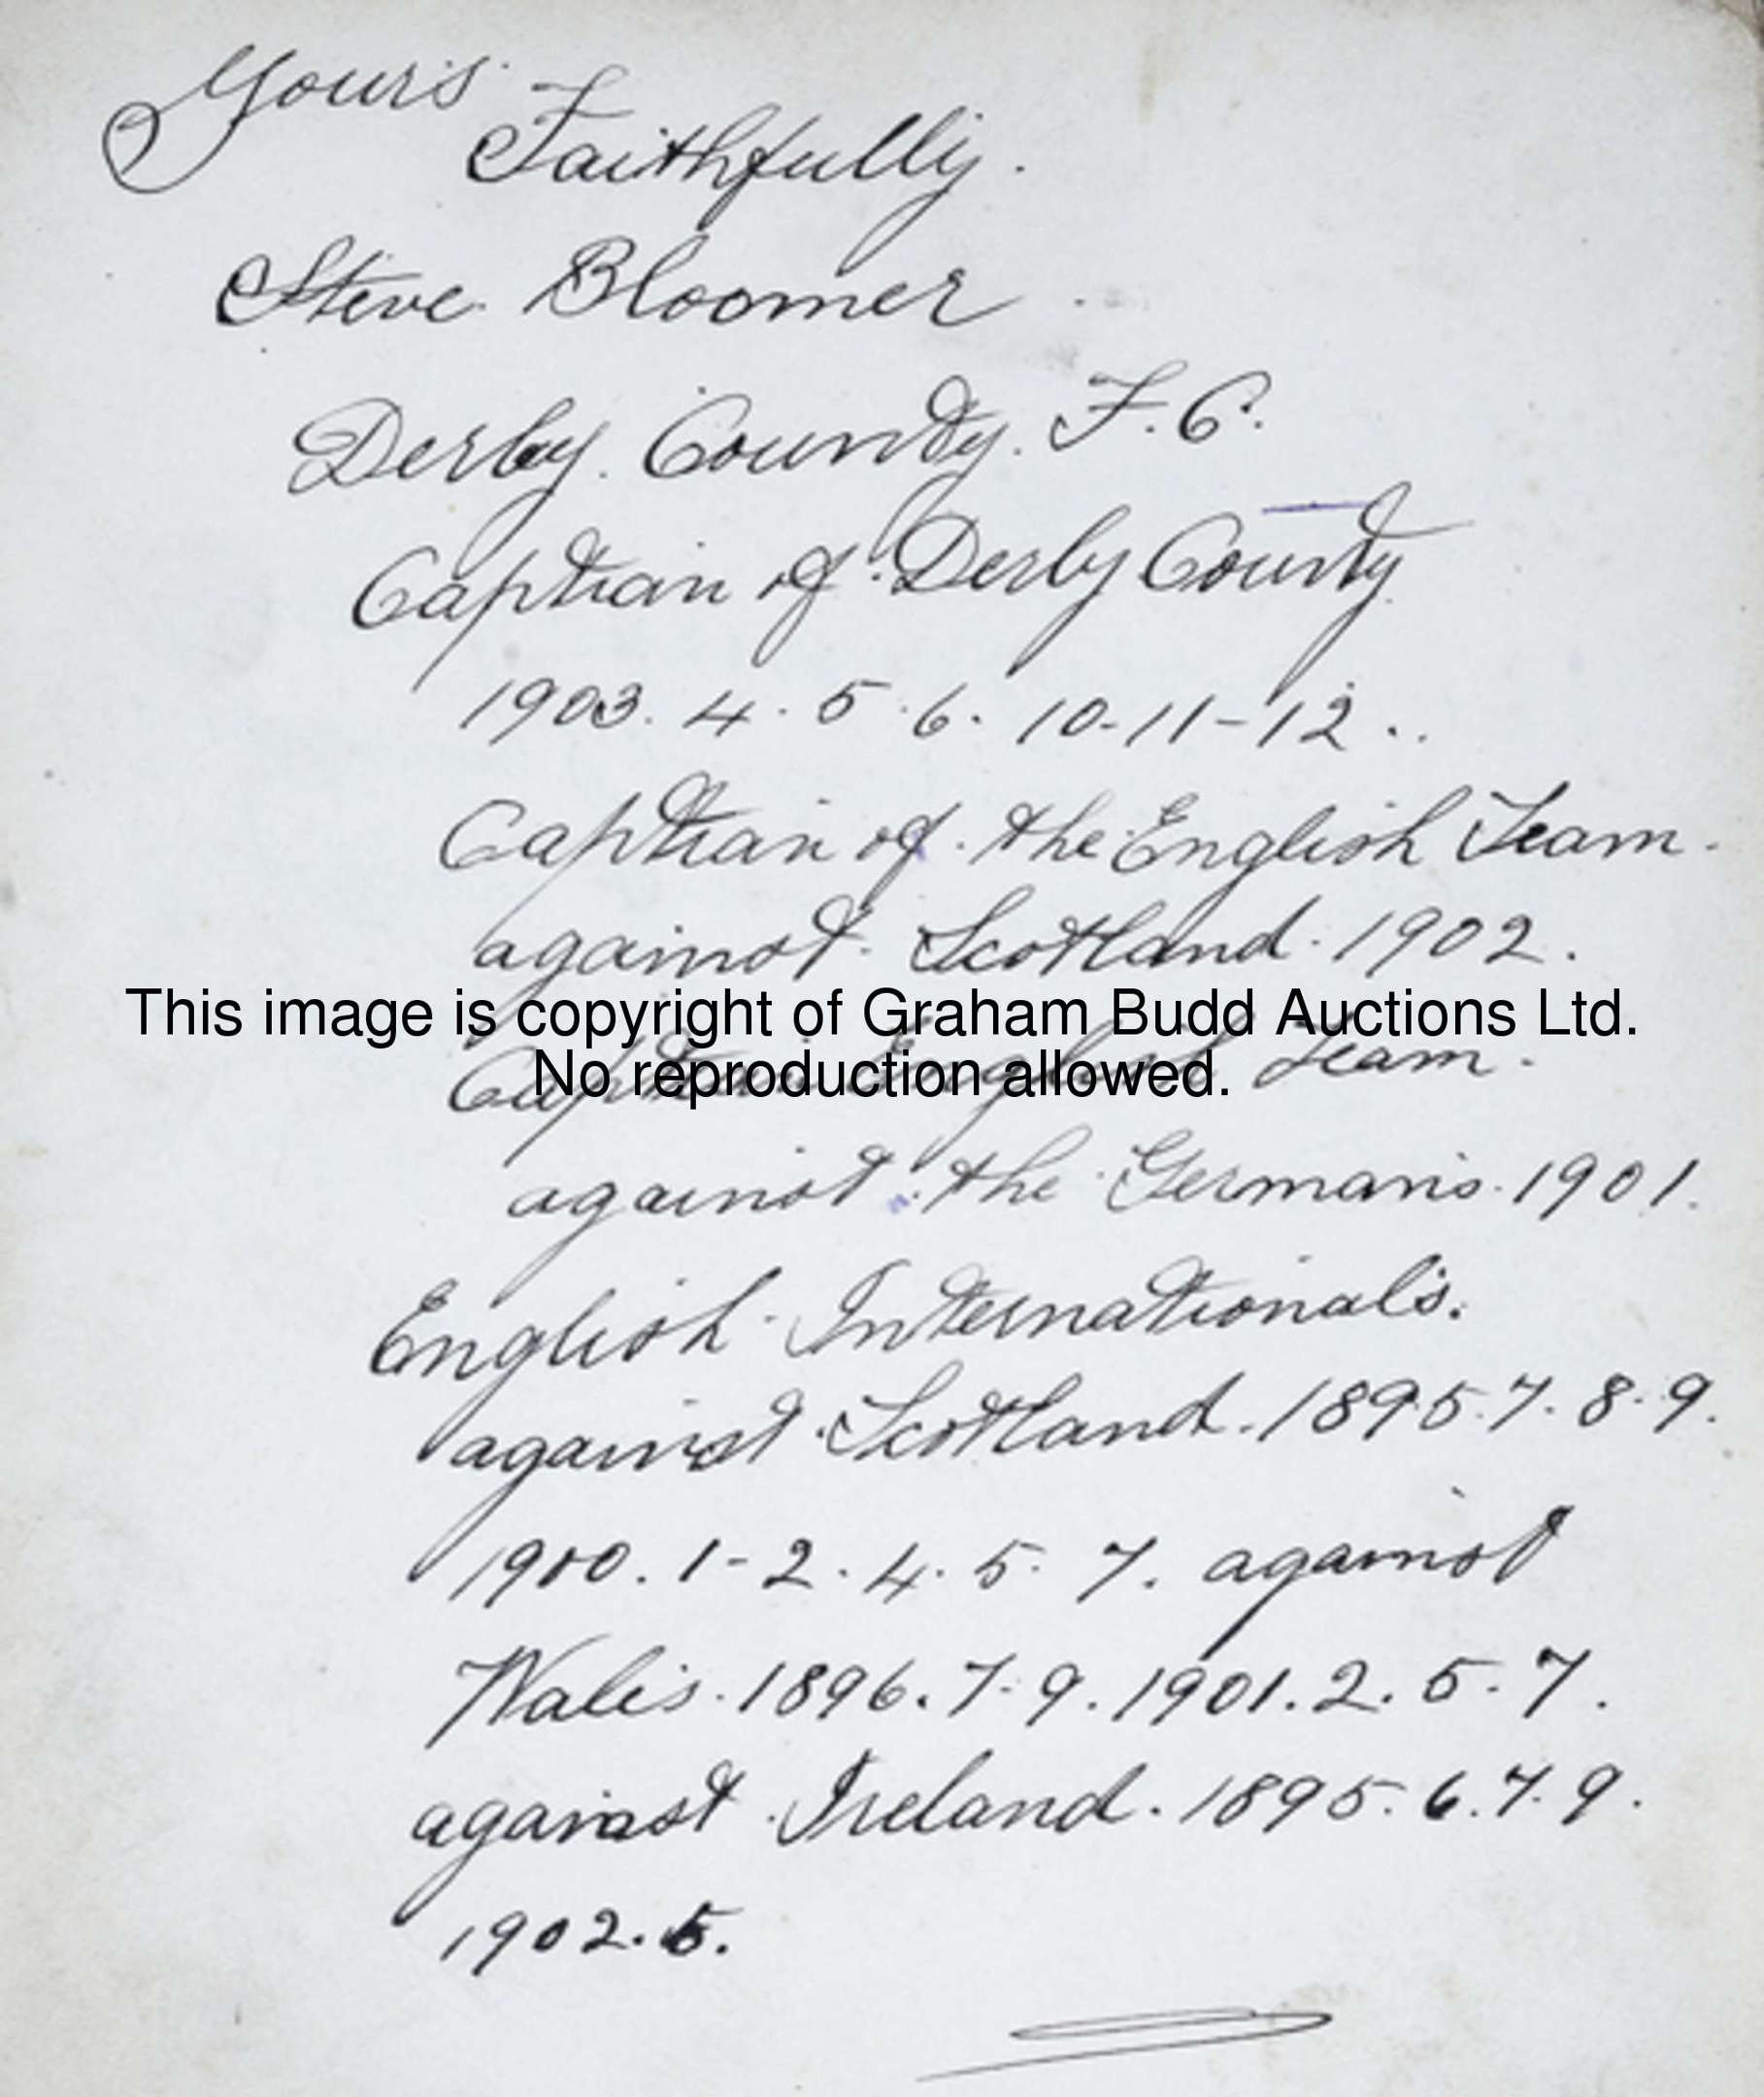 Yours
Faithfully.
Steve Bloomer
Derby. County. F.C.
Captian of Derby County
1903. 4. 5. 6. 10-11-12..
Captian of. the English Team.
against. Scotland. 1902.
This image is copyright of Graham Budd Auctions Ltd.
Captian English Team.
No reproduction allowed.
against. the Germans. 1901.
English. Internationals.
against. Scotland. 1895. 7. 8. 9.
1900. 1-2. 4. 5. 7. against
Wales. 1896. 7-9. 1901. 2. 5. 7.
against. Ireland. 1895. 6. 7. 9.
1902. 5.